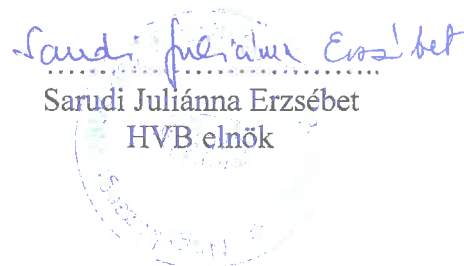 Sarudi Juliánna Erzsébet
Sarudi Juliánna Erzsébet
HVB elnök